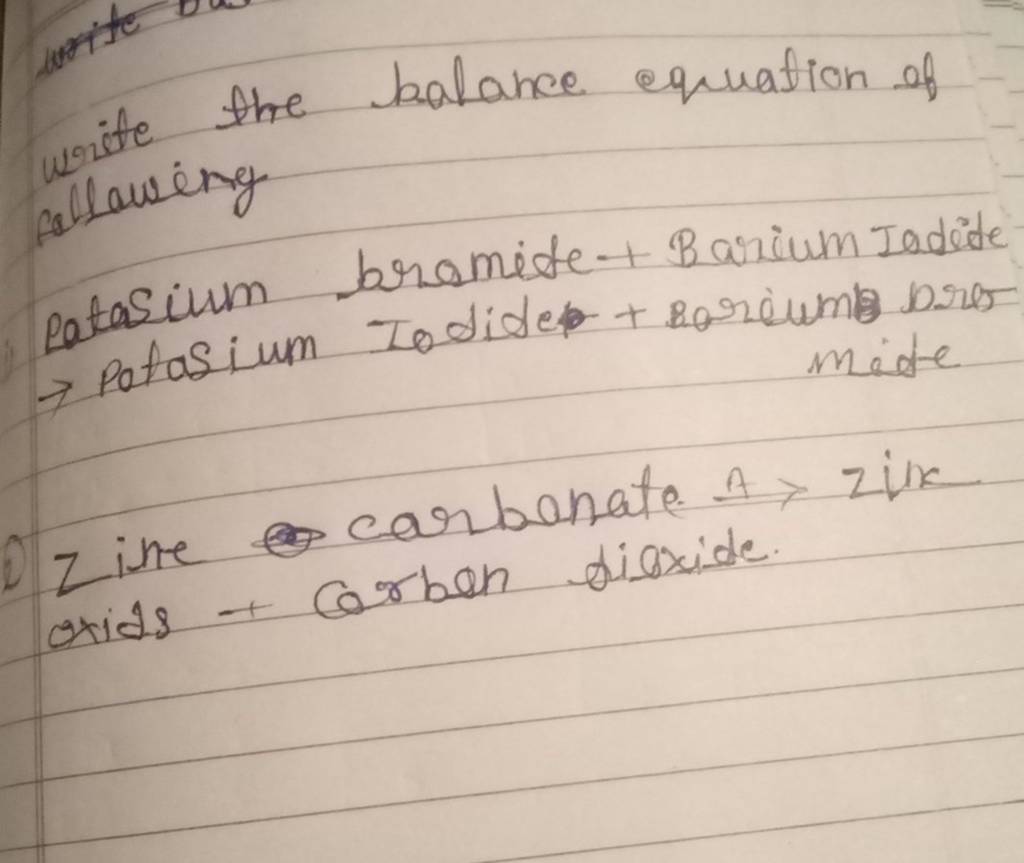 write
write the balance equation of
fallawing
Patasium bramide + Barium Iadide
→ Potasium Iodide + Barium bro
mide
Zine carbonate Δ> zinc
oxids + Carbon dioxide.